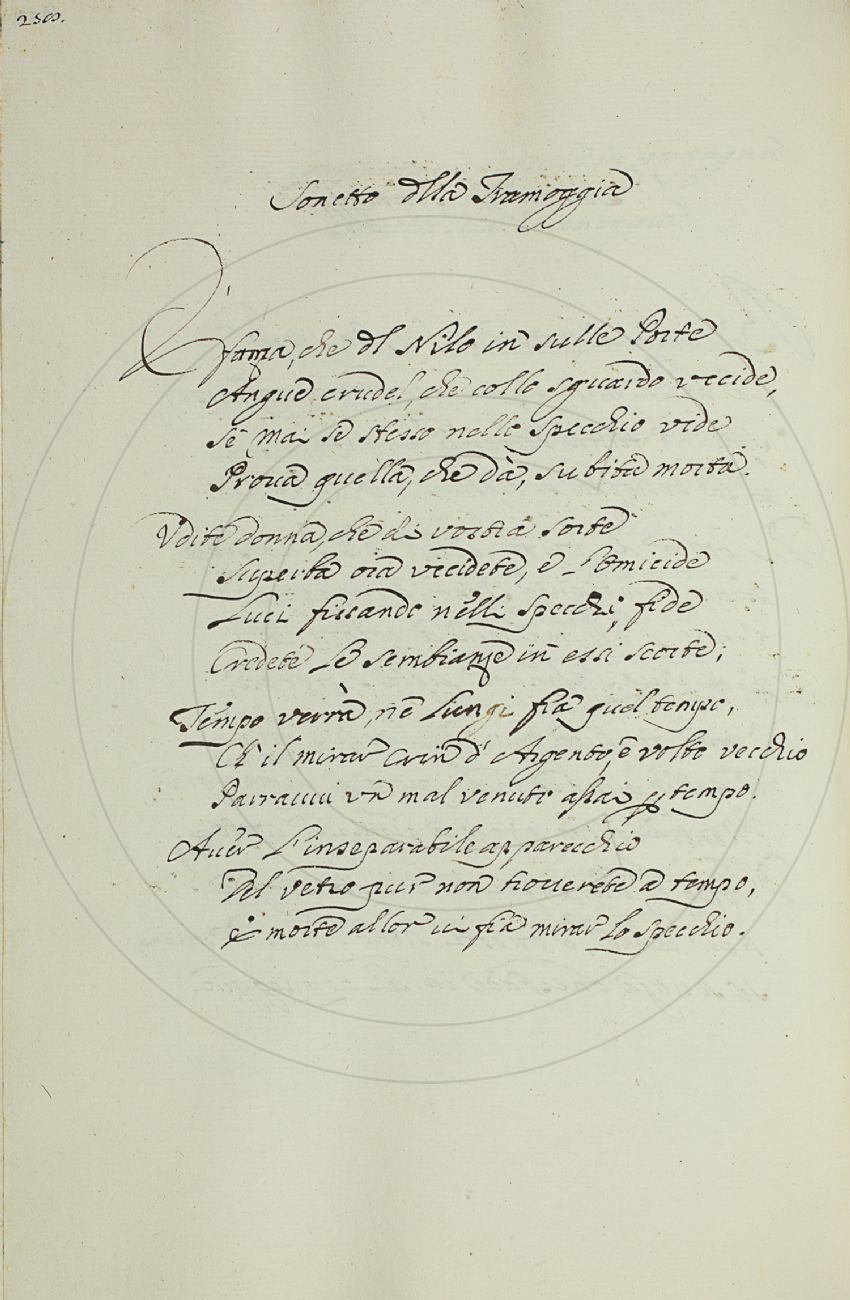 2300.
Sonetto dlla Tramoggia
È fama, che dl Nilo in sulle Porte
Angue crudel, che collo sguardo vccide,
se mai se stesso nello specchio vide
Proua quella, che dà, subita morte.
Vdite donna, che di vostra sorte
superba ora vccidete, e l'omicide
Luci fissando nelli specchi, fide
Credete le sembianze in essi scorte;
Tempo verrà, ne lungi fia quel tempo,
Ch'il mirar crin d'Argento, e volto vecchio
Parrauui vn mal venuto assai p tempo.
Auer l'inseparabile apparecchio
Del vetro pur non trouerete a tempo,
e morte allor ui fia mirar lo specchio.